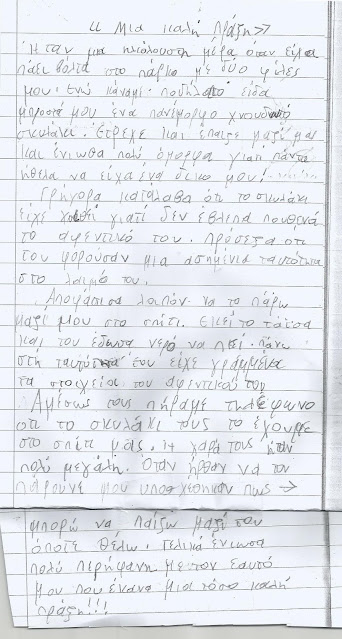 «Μια καλή πράξη»
Ήταν μια ηλιόλουστη μέρα όταν είχα
πάει βόλτα στο πάρκο με δύο φίλες
μου. Ενώ κάναμε ποδήλατο είδα
μπροστά μου ένα πανέμορφο χνουδωτό
σκυλάκι. Έτρεχε και έπαιζε μαζί μας
και ένιωθα πολύ όμορφα γιατί πάντα
ήθελα να είχα ένα δικό μου!
Γρήγορα κατάλαβα ότι το σκυλάκι
είχε χαθεί γιατί δεν έβλεπα πουθενά
το αφεντικό του. Πρόσεξα οτι
του φορούσαν μια ασημένια ταυτότητα
στο λαιμό του.
Αποφάσισα λοιπόν να το πάρω
μαζί μου στο σπίτι. Εκεί το τάισα
και του έδωσα νερό να πιεί. Πάνω
στη ταυτότητα του είχε γραμμένα
τα στοιχεία του αφεντικού του.
Αμέσως τους πήραμε τηλέφωνο
οτι το σκυλάκι τους το έχουμε
στο σπίτι μας. Η χαρά τους ήταν
πολύ μεγάλη. Όταν ήρθαν να τον
πάρουνε μου υποσχέθηκαν πως →
μπορώ να παίζω μαζί του
όποτε θέλω. Τελικά ένιωσα
πολύ περήφανη με τον εαυτό
μου που έκανα μια τόσο καλή
πράξη!!!